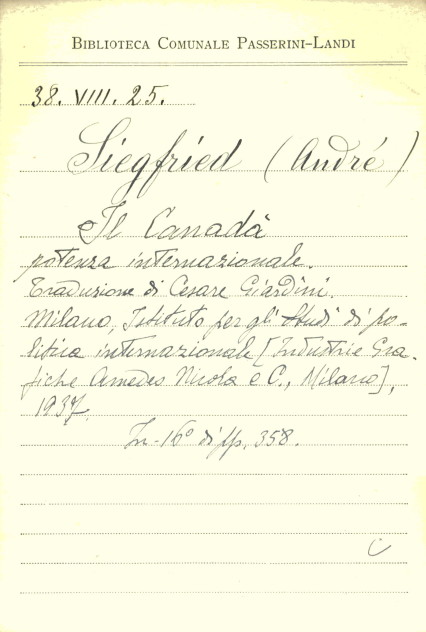 BIBLIOTECA COMUNALE PASSERINI-LANDI
38. VIII. 25.
Siegfried (André)
Il Canadà
potenza internazionale.
Traduzione di Cesare Giardini.
Milano, Istituto per gli Studi di po-
litica internazionale [Industrie Gra-
fiche Amedeo Nicola e C., Milano],
1937.
In-16° di pp. 358.